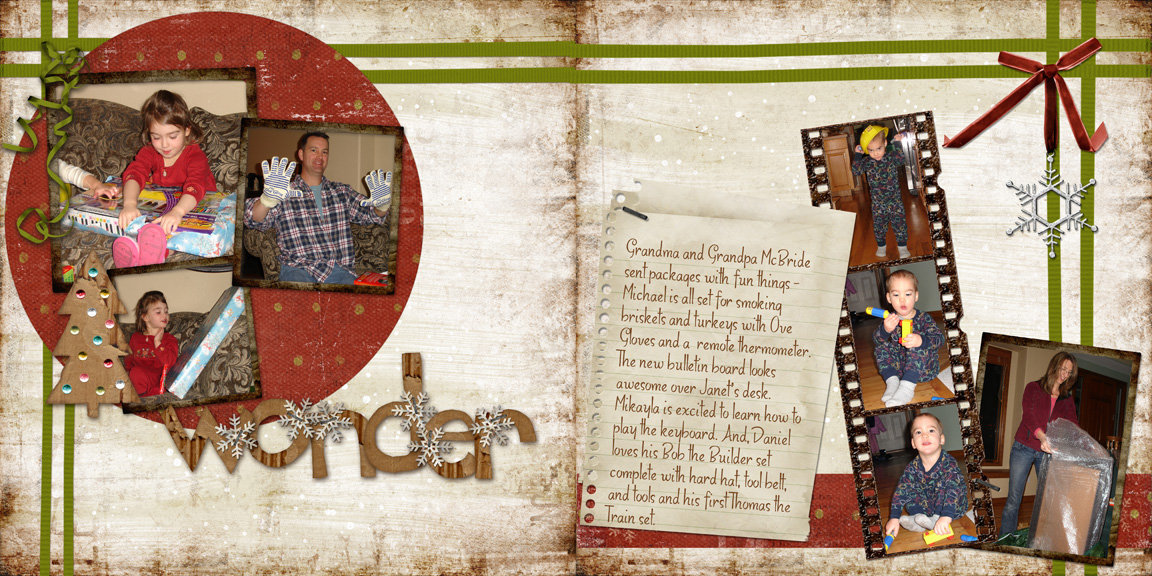 wonder
Grandma and Grandpa McBride
sent packages with fun things -
Michael is all set for smoking
briskets and turkeys with Ove
Gloves and a remote thermometer.
The new bulletin board looks
awesome over Janet's desk.
Mikayla is excited to learn how to
play the keyboard. And, Daniel
loves his Bob the Builder set
complete with hard hat, tool belt,
and tools and his first Thomas the
Train set.